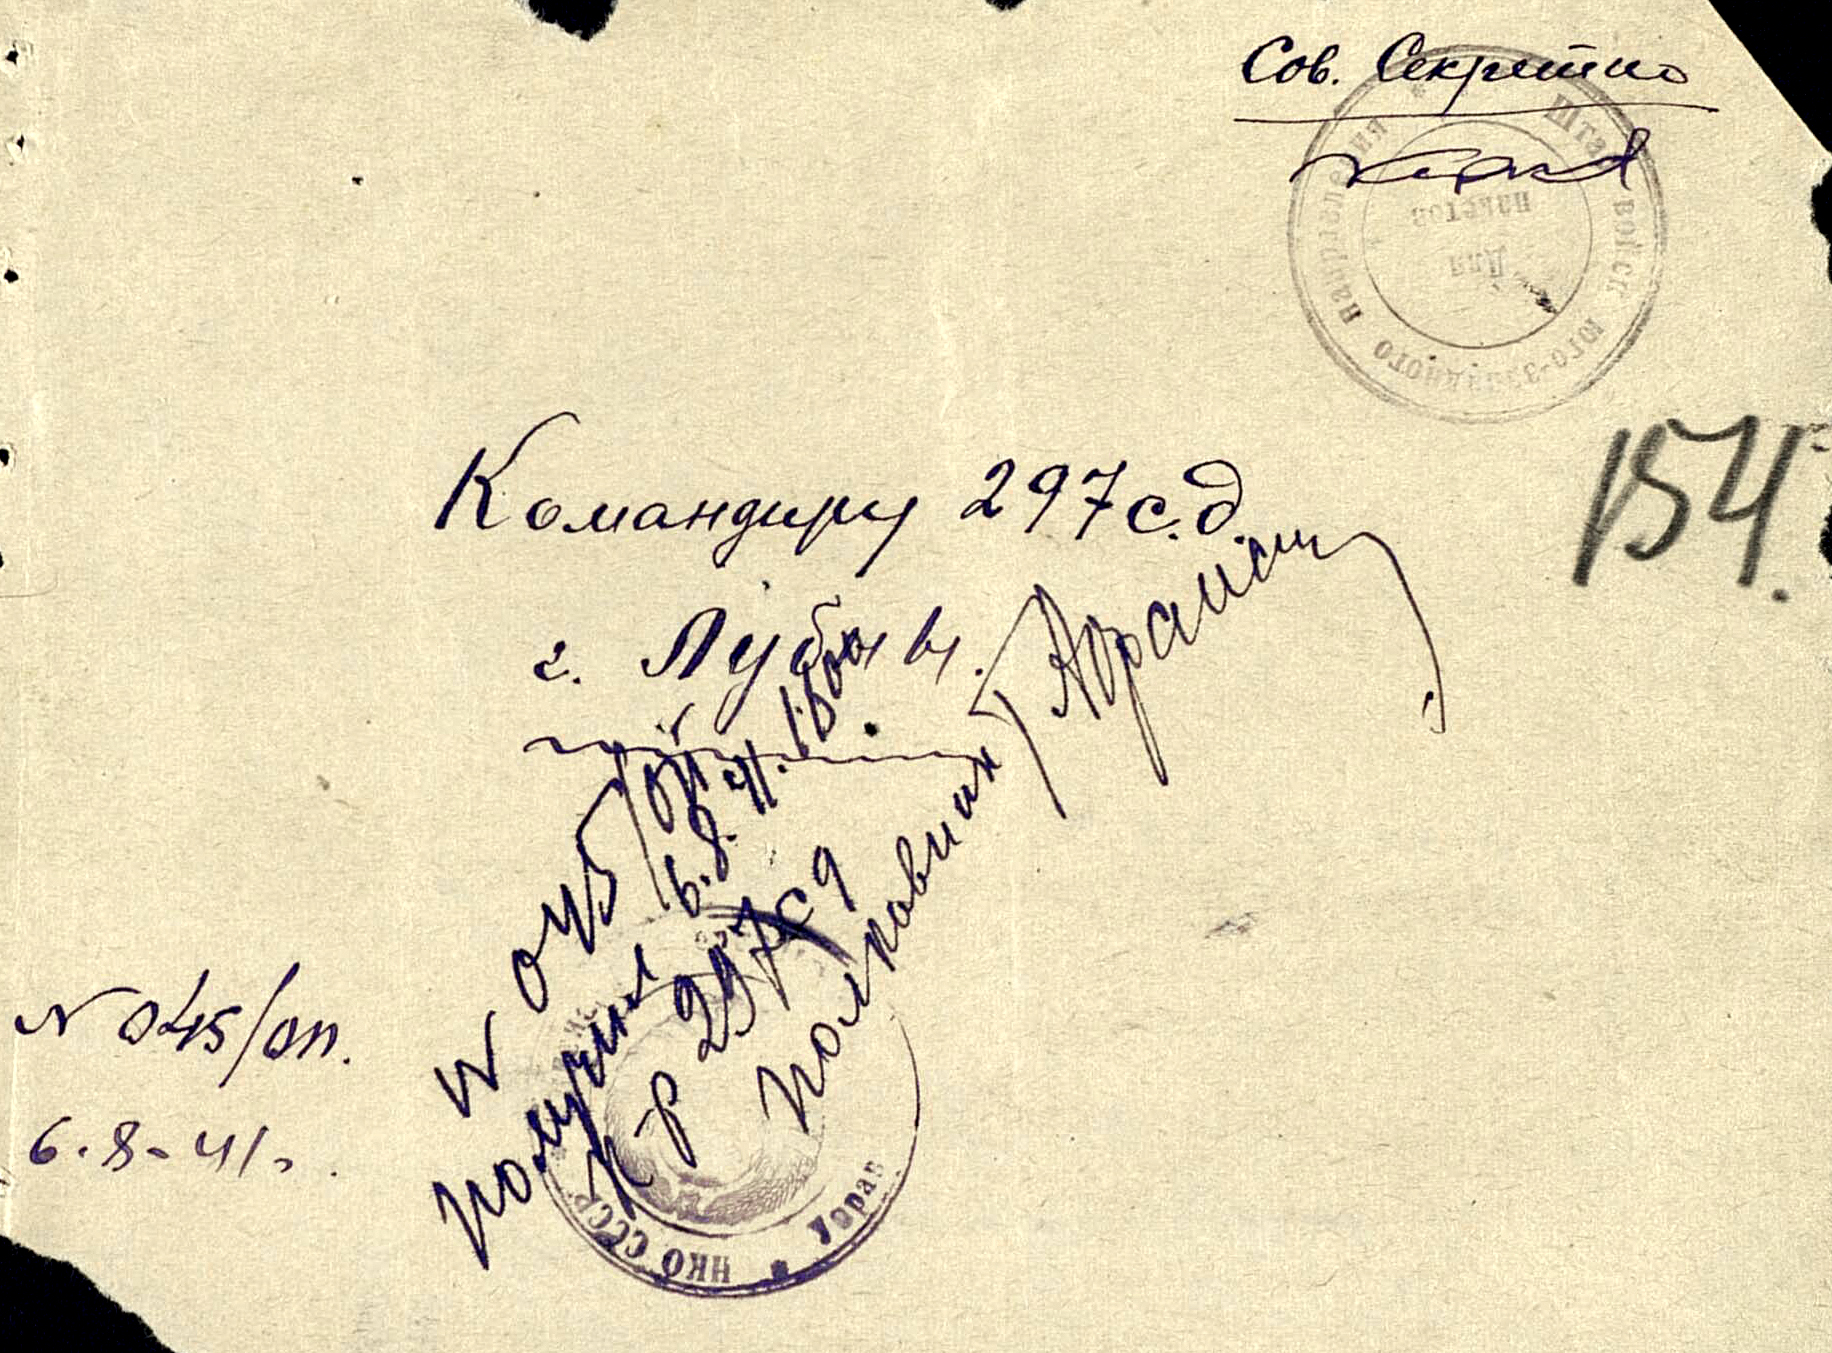 Сов. Секретно
Штаб войск юго-западного направления
Для
пакетов
154.
Командиру 297 с.д.
г. Лубны.
N 045/оп
Получил 6.8.41. 1800
К-р 297 сд
Полковник
N 045/оп.
6.8-41.
НКО СССР * Управ